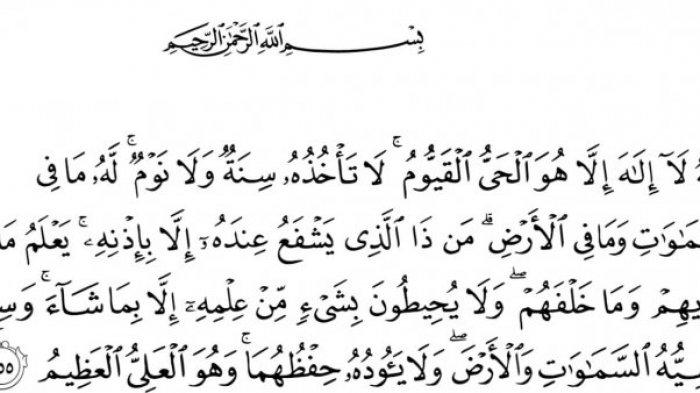 بِسْمِ اللَّهِ الرَّحْمَٰنِ الرَّحِيمِ
هُ لَآ إِلَٰهَ إِلَّا هُوَ ٱلْحَىُّ ٱلْقَيُّومُ ۚ لَا تَأْخُذُهُۥ سِنَةٌ وَلَا نَوْمٌ ۚ لَّهُۥ مَا فِى
مَٰوَٰتِ وَمَا فِى ٱلْأَرْضِ ۗ مَن ذَا ٱلَّذِى يَشْفَعُ عِندَهُۥٓ إِلَّا بِإِذْنِهِۦ ۚ يَعْلَمُ مَا
يهِمْ وَمَا خَلْفَهُمْ ۖ وَلَا يُحِيطُونَ بِشَىْءٍ مِّنْ عِلْمِهِۦٓ إِلَّا بِمَا شَآءَ ۚ وَسِ
سِيُّهُ ٱلسَّمَٰوَٰتِ وَٱلْأَرْضَ ۖ وَلَا يَـُٔودُهُۥ حِفْظُهُمَا ۚ وَهُوَ ٱلْعَلِىُّ ٱلْعَظِيمُ